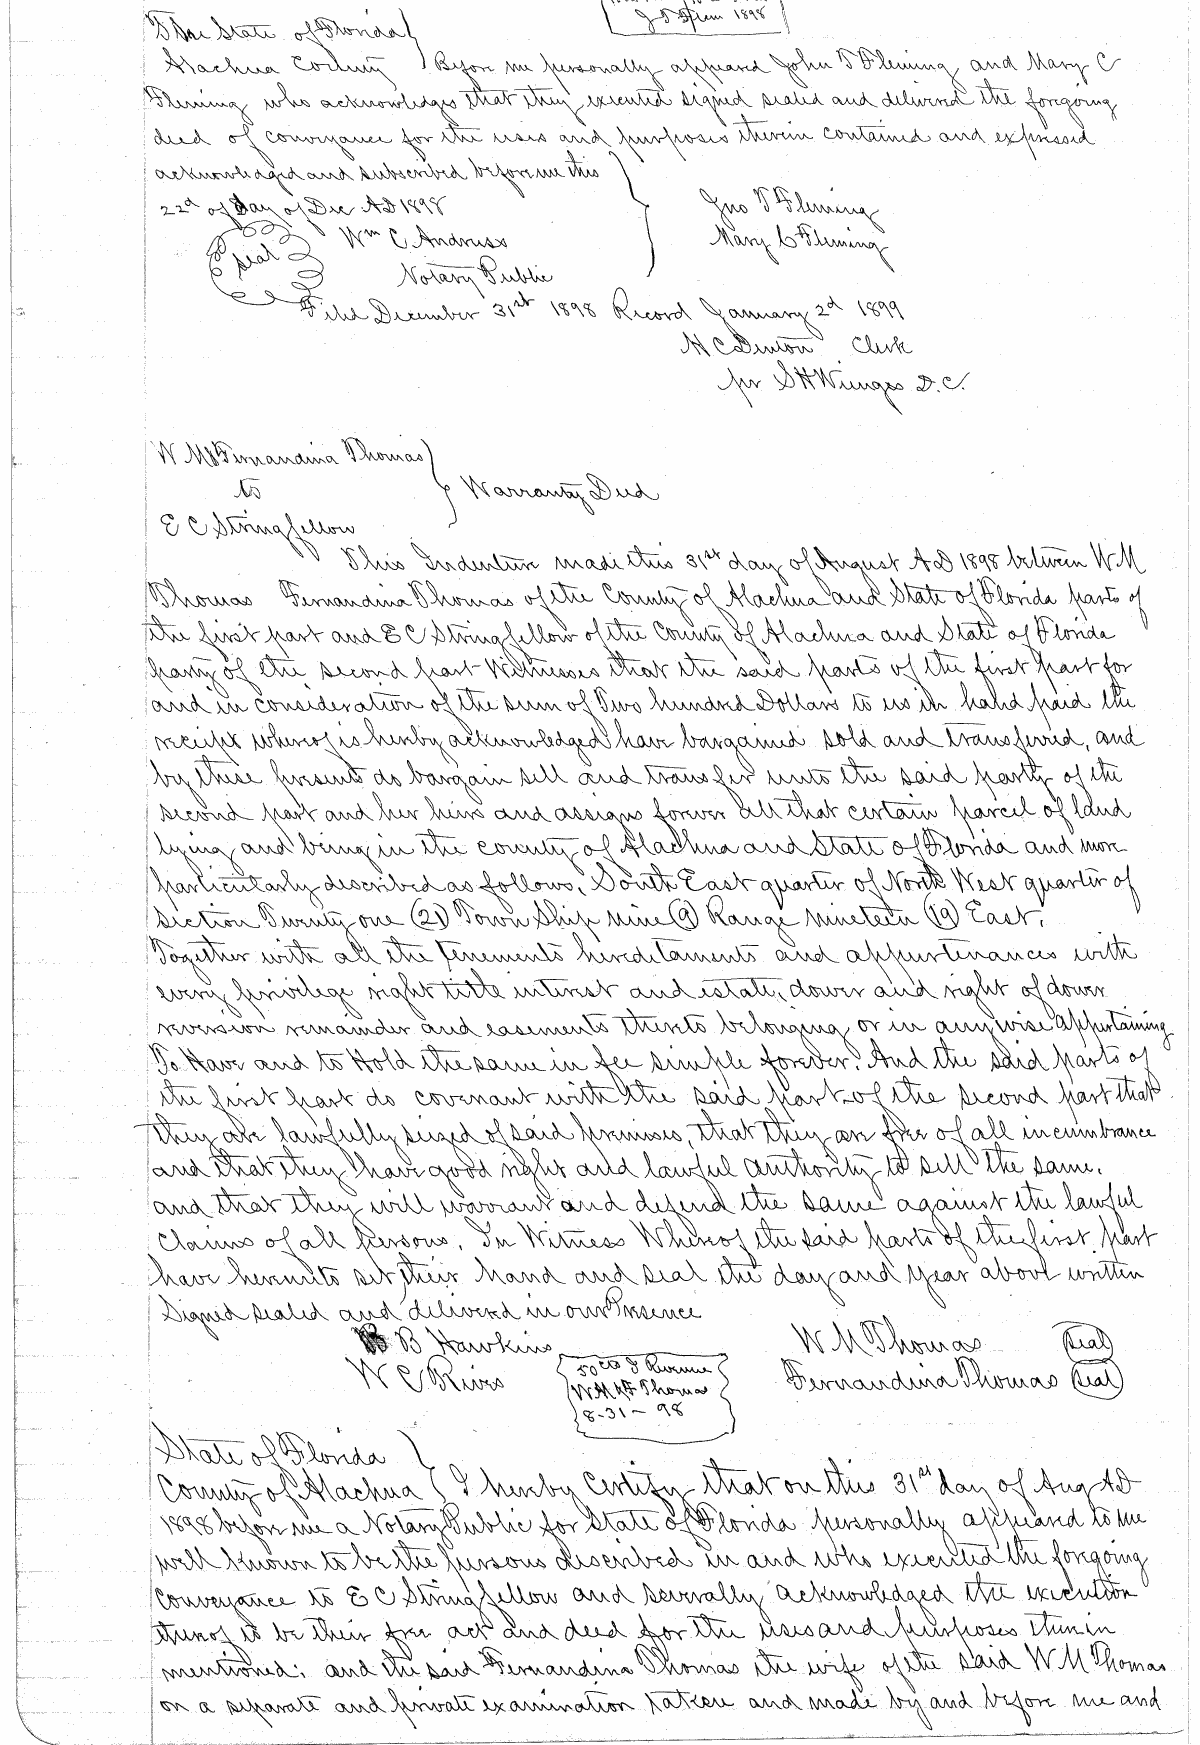 J T F Jun 1898
The State of Florida
Alachua County Before me personally appeared John T Fleming and Mary C
Fleming who acknowledges that they executed signed sealed and delivered the forgoing
deed of conveyance for the uses and purposes therein contained and expressed
acknowledged and subscribed before me this
22d of Day of Dec AD 1898
Jno T Fleming
seal Wm C Andruss
Mary C Fleming
Notary Public
Filed December 31st 1898 Record January 2d 1899
H C Denton Clerk
per S H Wienges D.C.
W M & Fernandina Thomas
to
Warranty Deed
E C Stringfellow
This Indenture made this 31st day of August AD 1898 between W M
Thomas Fernandina Thomas of the County of Alachua and State of Florida parts of
the first part and E C Stringfellow of the County of Alachua and State of Florida
party of the second part Witnesses that the said parts of the first part for
and in consideration of the sum of Two hundred Dollars to us in hand paid the
receipt whereof is hereby acknowledged have bargained sold and transferred, and
by these presents do bargain sell and transfer unto the said partly of the
second part and her heirs and assigns forever all that certain parcel of land
lying and being in the county of Alachua and State of Florida and more
particularly described as follows, South East quarter of North West quarter of
section Twenty one (21) Town Ship nine (9) Range nineteen (19) East,
Together with all the tenements hereditaments and appurtenances with
every privilege right title interest and estate, dower and right of dower
reversion remainder and easements thereto belonging or in anywise appertaining
To Have and to Hold the same in fee simple forever. And the said parts of
the first part do covenant with the said part of the second part that
they are lawfully seized of said premises, that they are free of all incumbrance
and that they have good right and lawful authority to sell the same.
and that they will warrant and defend the same against the lawful
Claims of all persons. In Witness Whereof the said parts of the first part
have hereunto set their hand and seal the day and year above written
Signed sealed and delivered in our Presence
B Hawkins W M Thomas seal
W C Rives Fernandina Thomas seal
50cts I Revenue
W M & F Thomas
8-31-98
State of Florida
County of Alachua I hereby Certify that on this 31st day of Aug AD
1898 before me a Notary Public for State of Florida personally appeared to me
well known to be the persons described in and who executed the forgoing
Conveyance to E C Stringfellow and severally acknowledged the execution
thereof to be their free act and deed for the uses and purposes therein
mentioned; and the said Fernandina Thomas the wife of the said W M Thomas
on a separate and private examination taken and made by and before me and